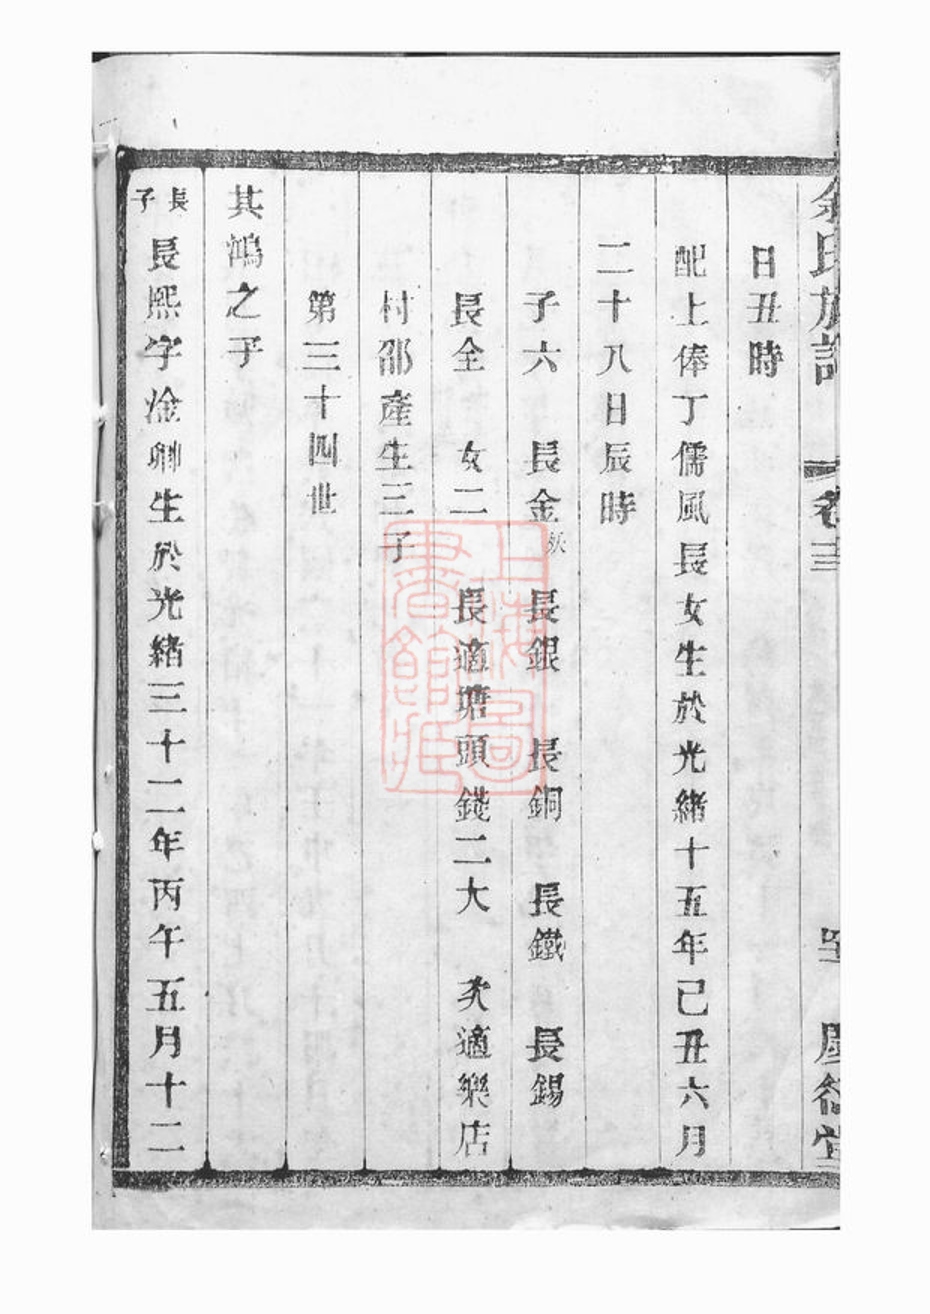 余氏族譜 卷三 慶衍堂
日丑時
配上俸丁儒風長女生於光緒十五年己丑六月
二十八日辰時
子六 長金妖 長銀 長銅 長鐵 長錫
長全 女二 長適塘頭錢二大 次適樂店
村邵產生三子
第三十四世
其鴻之子
長子 長熙字淦卿生於光緒三十二年丙午五月十二
上海圖書館藏